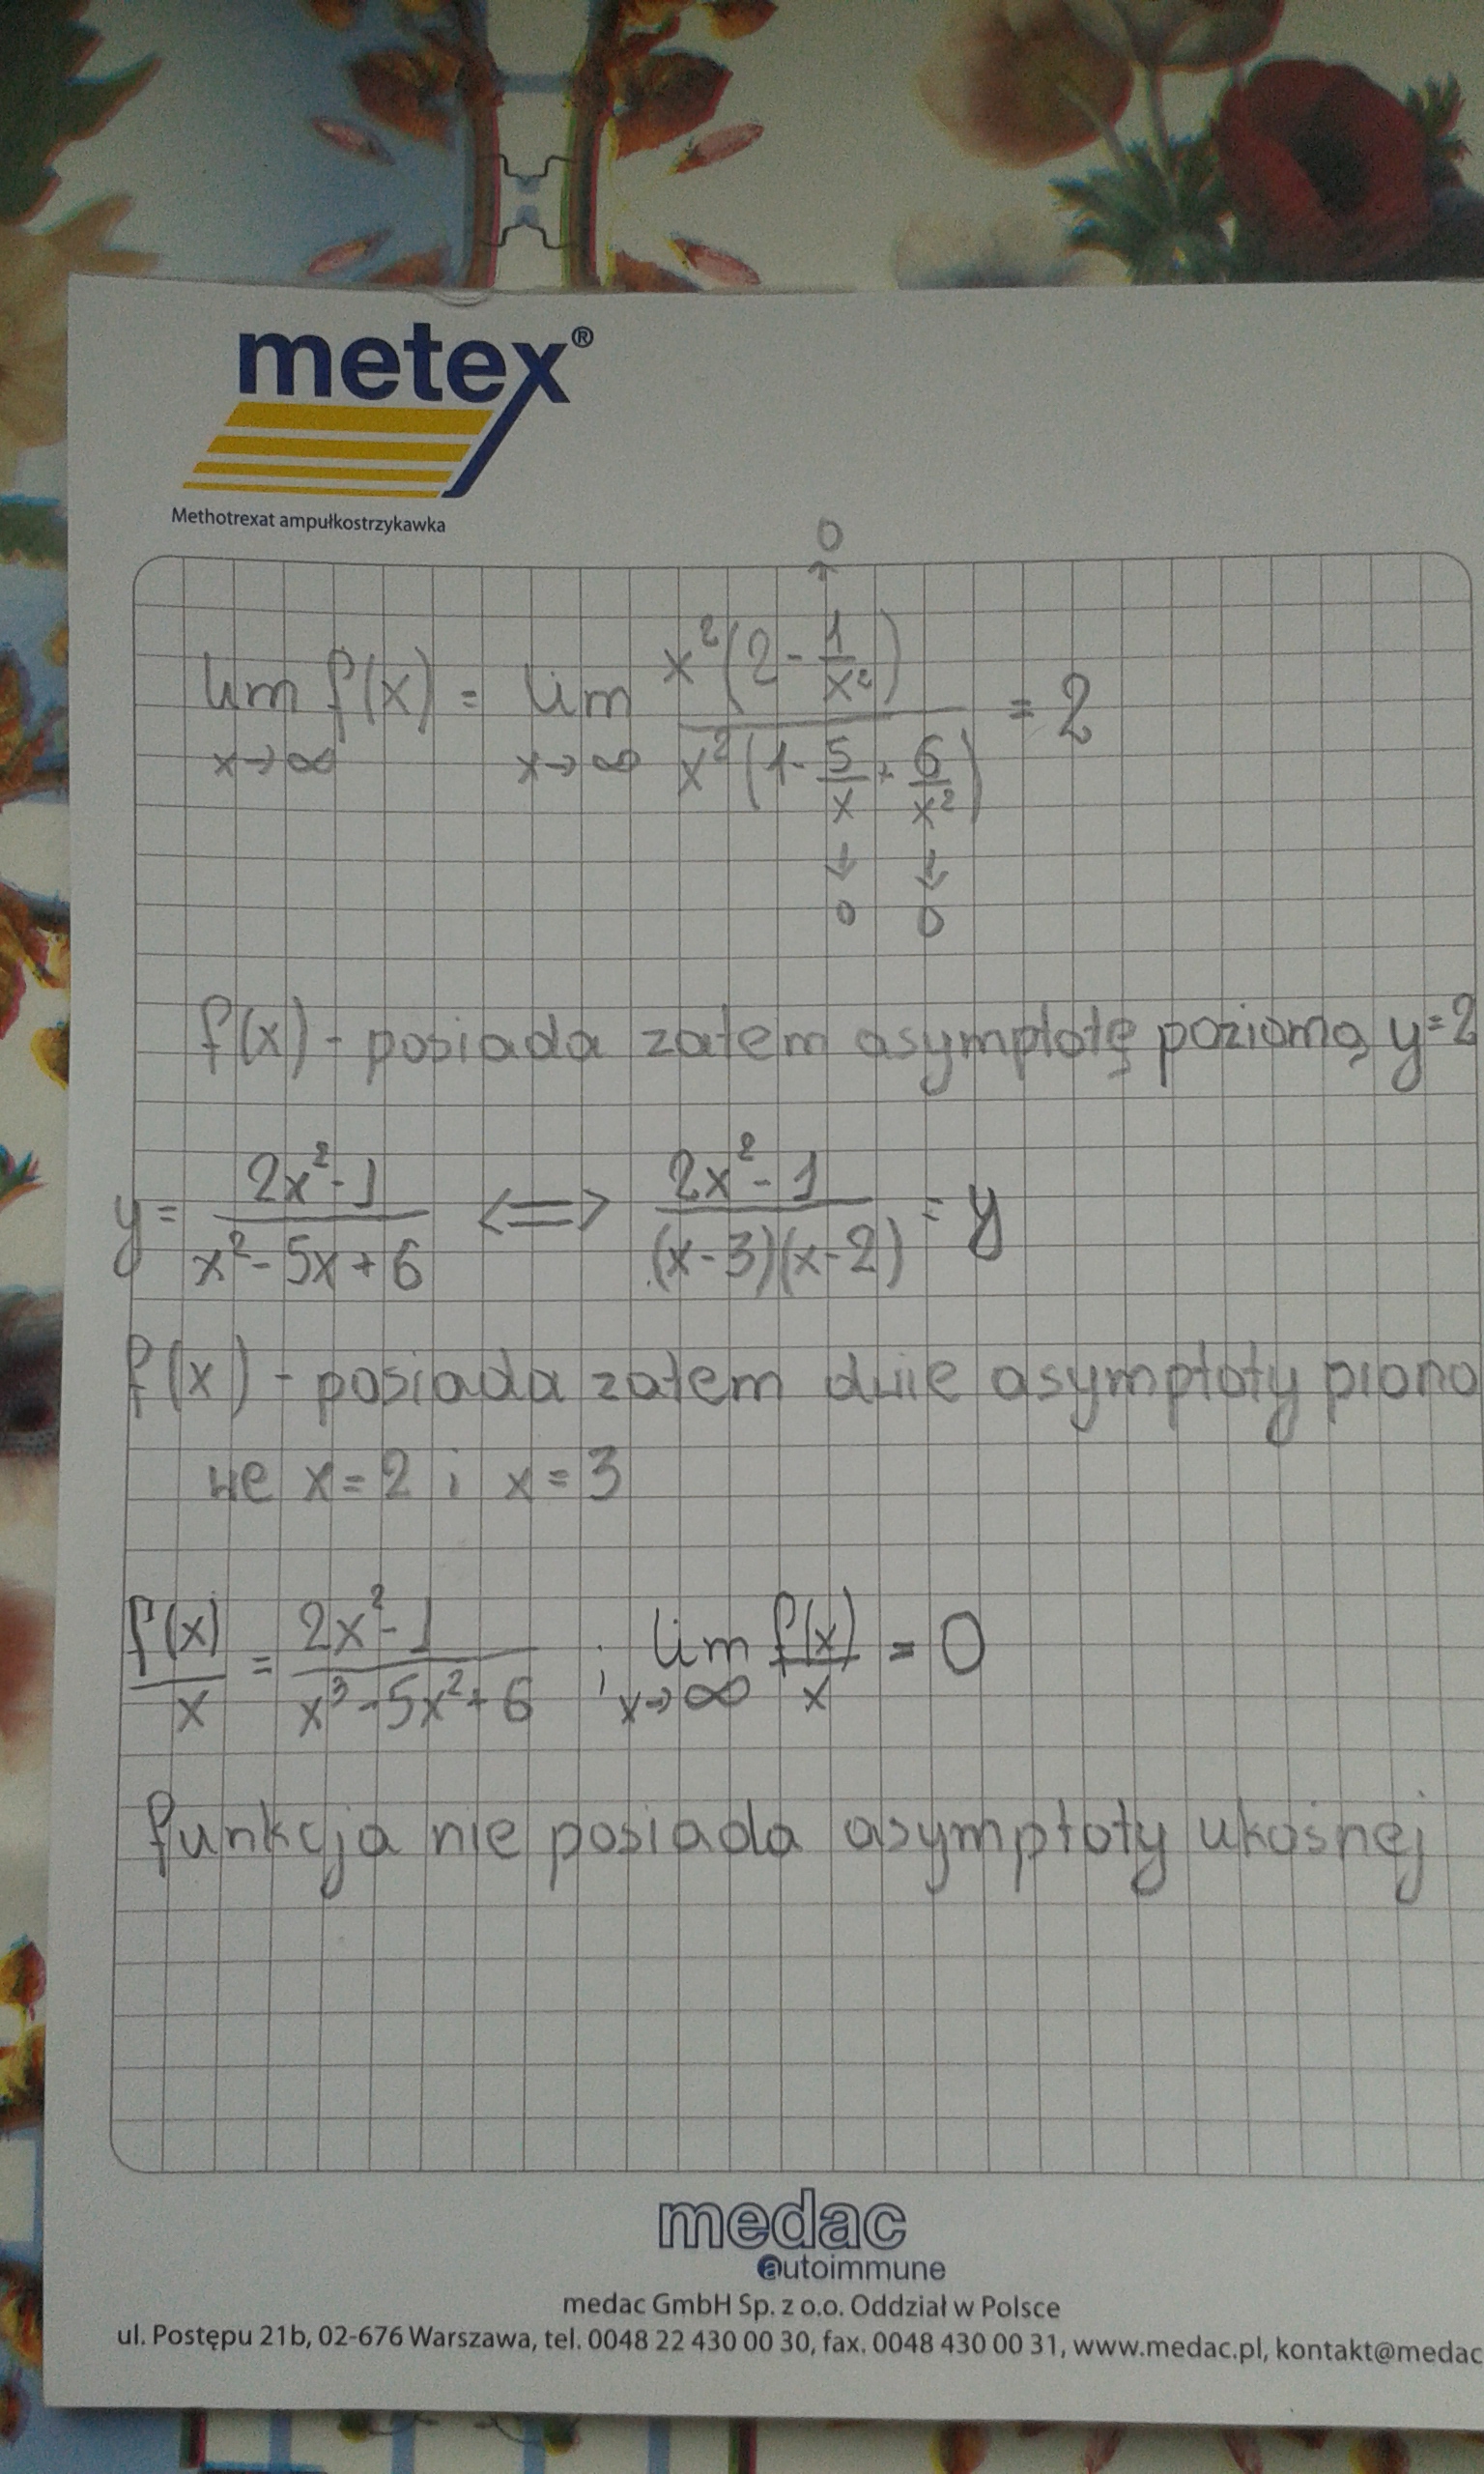 metex®
Methotrexat ampułkostrzykawka
0
lim f(x) = lim x²(2 - 1/x²) / x²(1 - 5/x + 6/x²) = 2
x→∞ x→∞
↓ ↓
0 0
f(x) - posiada zatem asymptotę poziomą y=2
y = 2x²-1 / x²-5x+6 <=> 2x²-1 / (x-3)(x-2) = y
f(x) - posiada zatem dwie asymptoty piono
we x=2 i x=3
f(x)/x = 2x²-1 / x³-5x²+6 ; lim x→∞ f(x)/x = 0
funkcja nie posiada asymptoty ukośnej
medac
autoimmune
medac GmbH Sp. z o.o. Oddział w Polsce
ul. Postępu 21b, 02-676 Warszawa, tel. 0048 22 430 00 30, fax. 0048 430 00 31, www.medac.pl, kontakt@medac